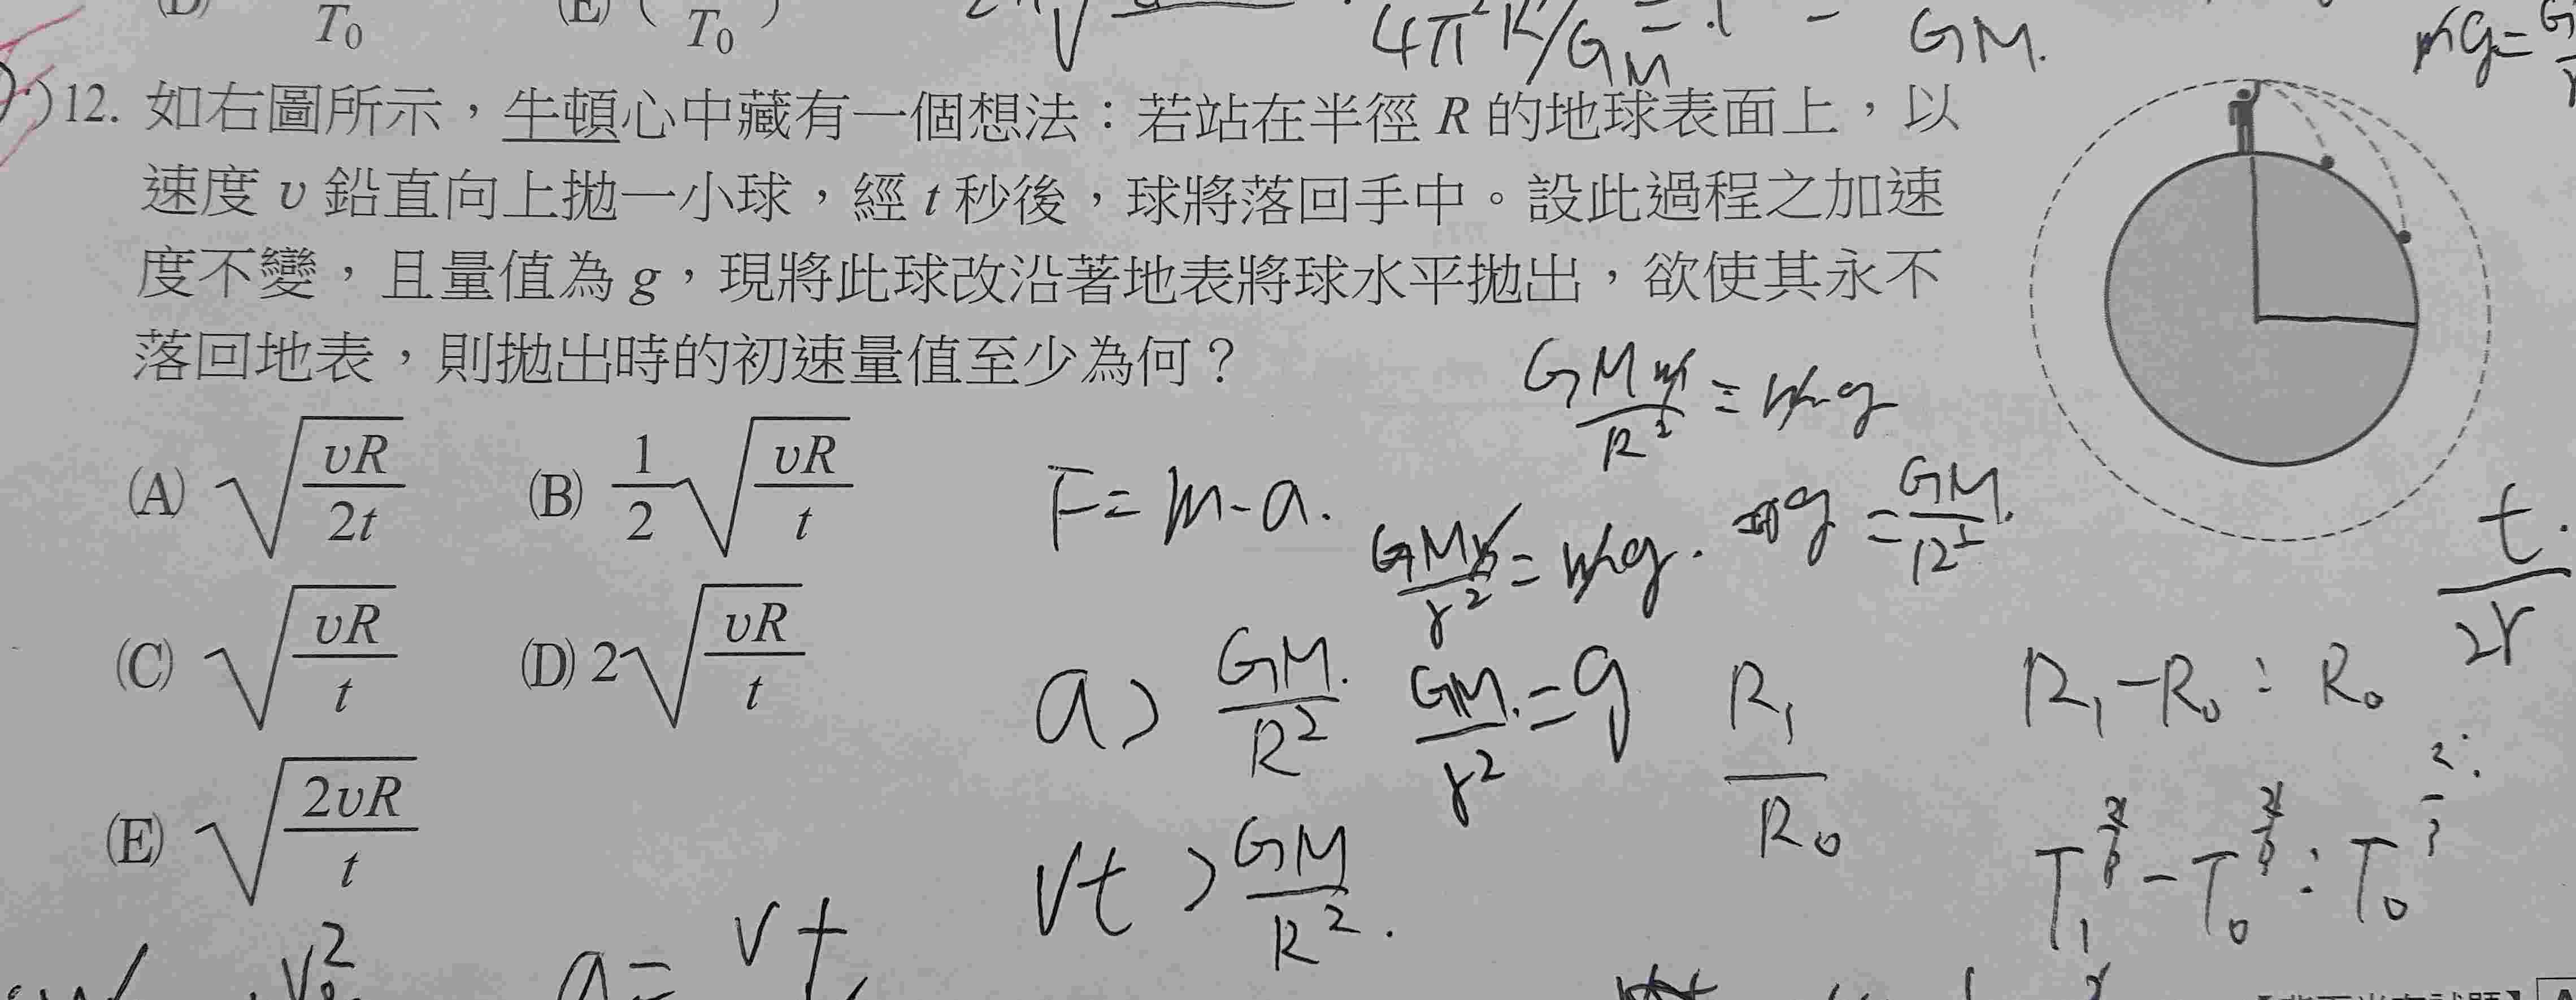 T₀
T₀
4π²R³/GM
GM.
mg=
12. 如右圖所示，牛頓心中藏有一個想法：若站在半徑 R 的地球表面上，以
速度 υ 鉛直向上拋一小球，經 t 秒後，球將落回手中。設此過程之加速
度不變，且量值為 g，現將此球改沿著地表將球水平拋出，欲使其永不
落回地表，則拋出時的初速量值至少為何？
GMm/R² = mg
(A) √(υR/2t) (B) 1/2 √(υR/t)
F=m-a.
GMm/r² = mg.
g = GM/R²
t/2r
(C) √(υR/t) (D) 2√(υR/t)
a > GM/R²
GM/r² = g
R₁/R₀
R₁-R₀ : R₀
(E) √(2υR/t)
Vt > GM/R².
a=
Vt